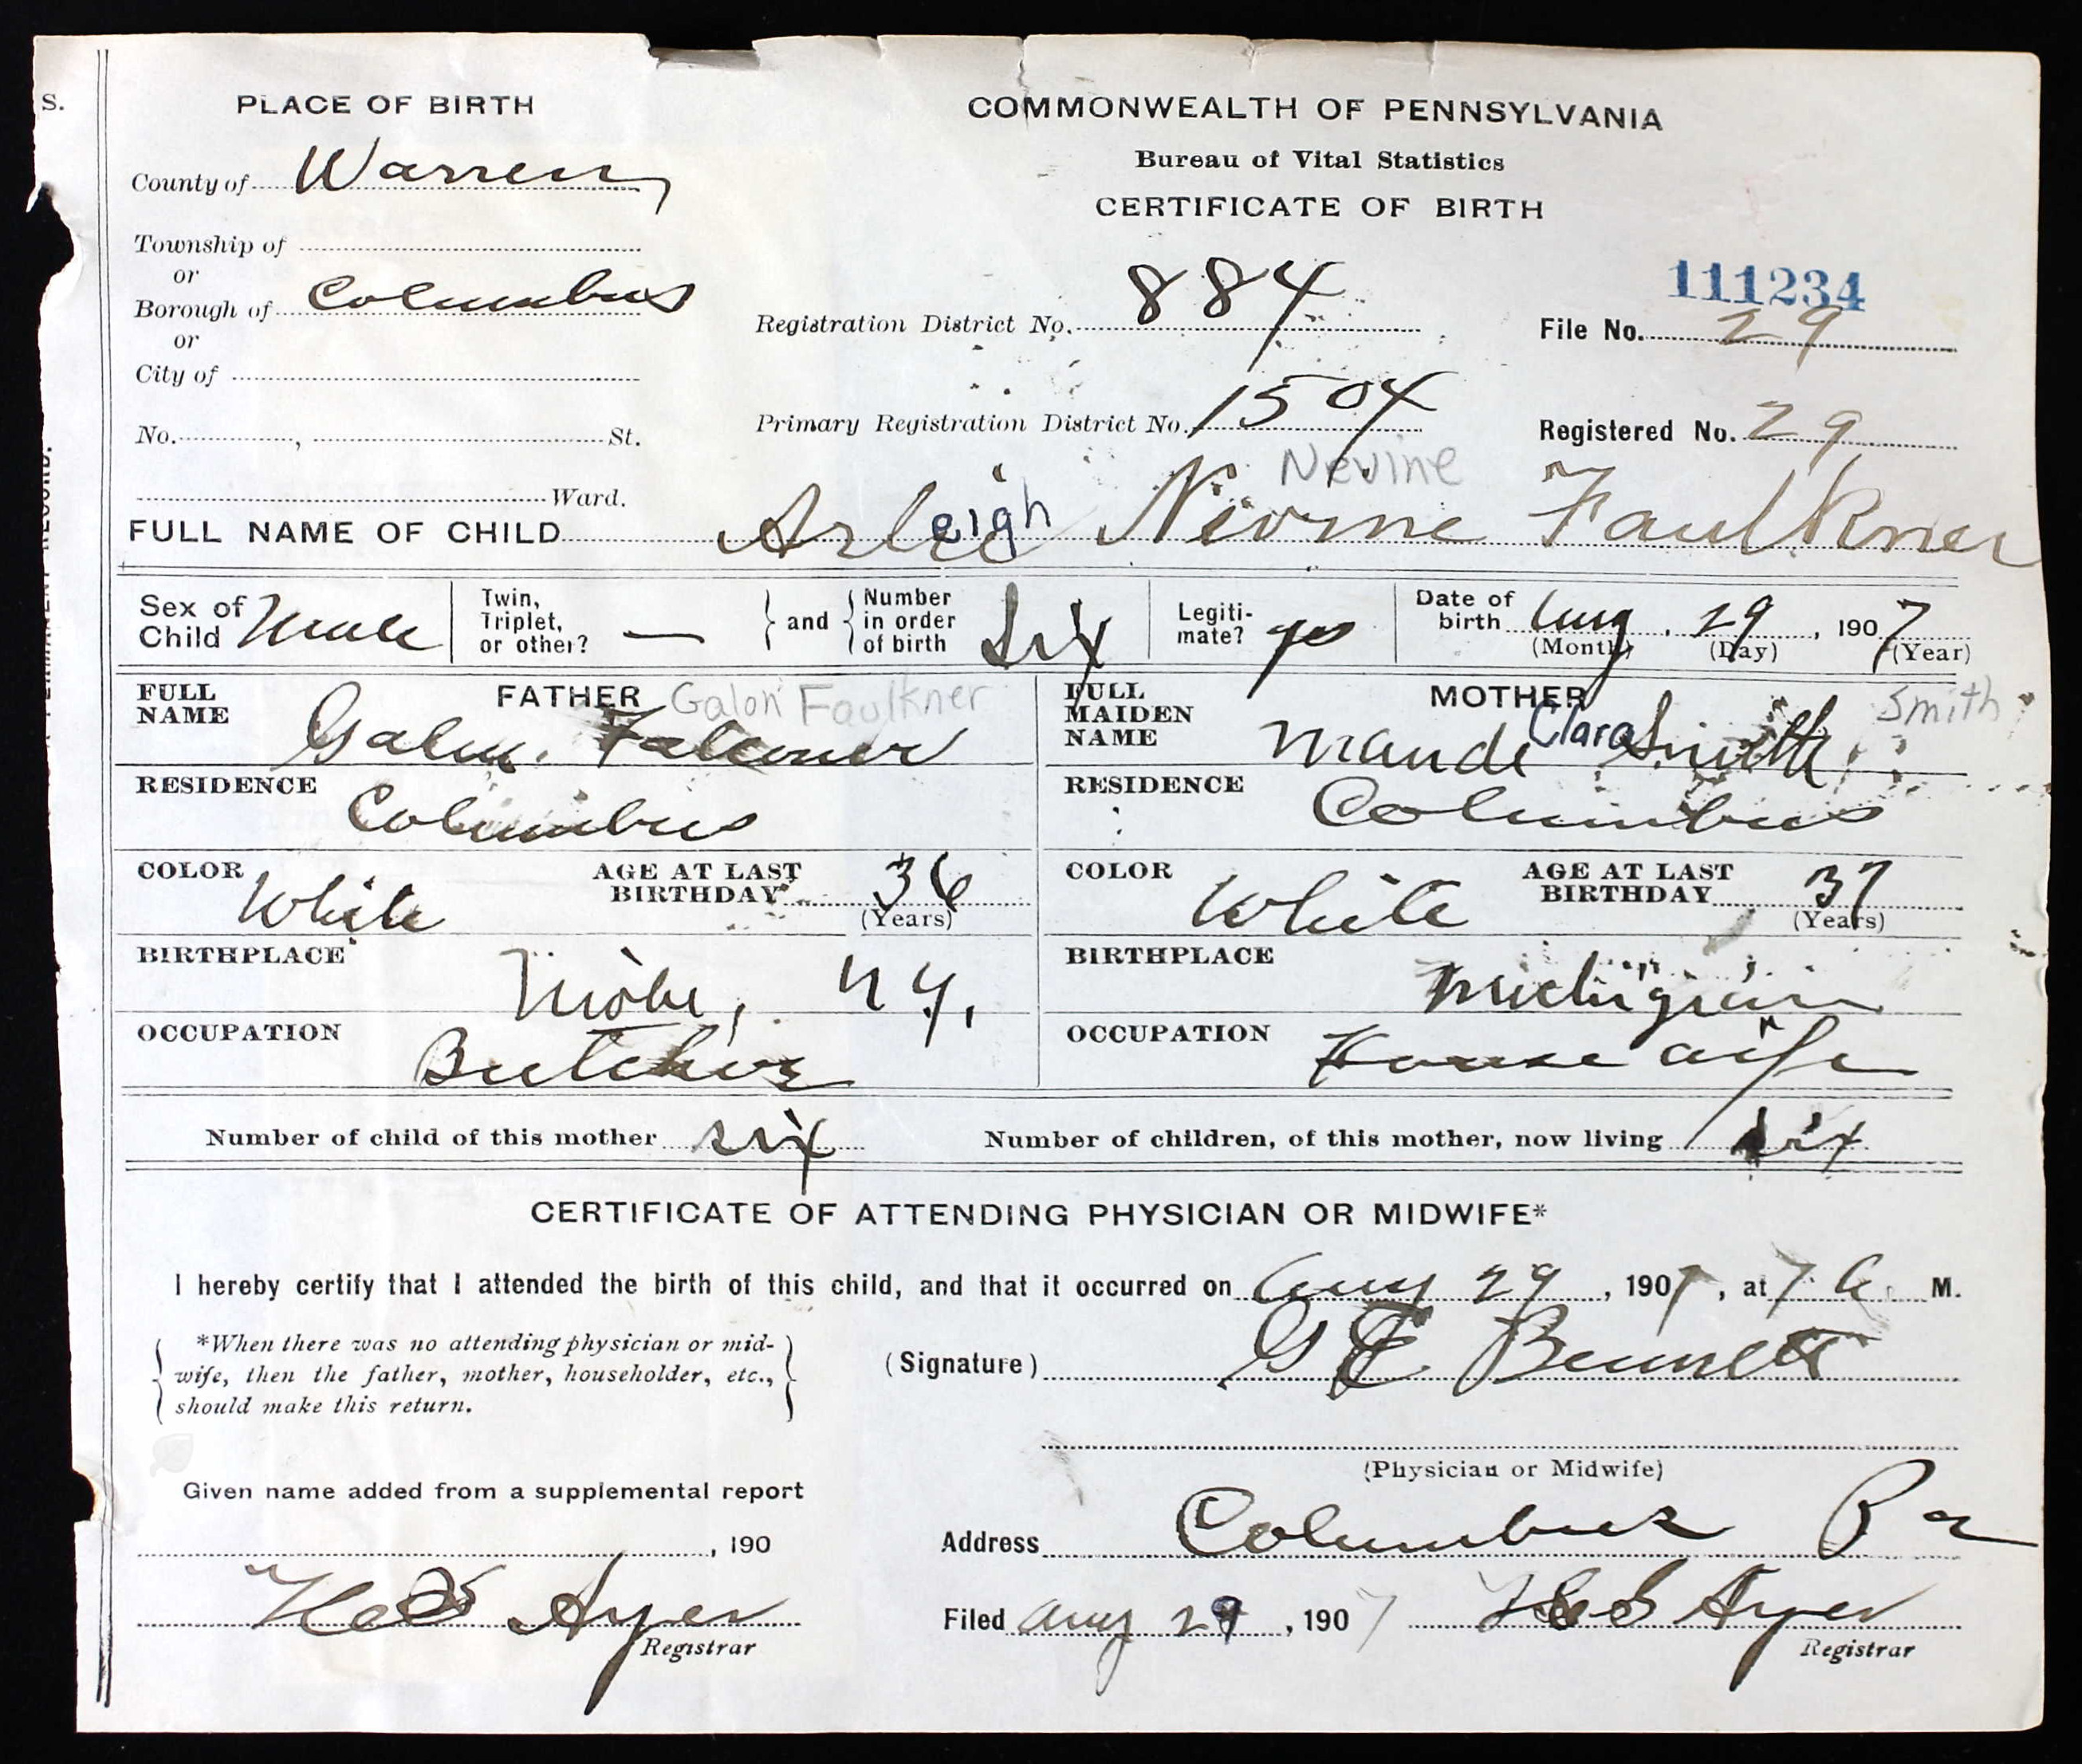 S.
PLACE OF BIRTH
County of Warren
Township of
or
Borough of Columbus
or
City of
No. , St.
Ward.
COMMONWEALTH OF PENNSYLVANIA
Bureau of Vital Statistics
CERTIFICATE OF BIRTH
111234
Registration District No. 884
File No. 29
Primary Registration District No. 1504
Registered No. 29
Nevine
FULL NAME OF CHILD Arleigh Faulkner
Sex of Child Male
Twin, Triplet, or other? —
and
Number in order of birth Six
Legitimate? yes
Date of birth Aug, 29, 1907
(Month) (Day) (Year)
FATHER Galon Faulkner
FULL NAME Galen. Falconer
RESIDENCE Columbus
COLOR White
AGE AT LAST BIRTHDAY 36
(Years)
BIRTHPLACE Niobe, N Y.
OCCUPATION Butcher
MOTHER Smith
FULL MAIDEN NAME Maude Clara Smith
RESIDENCE Columbus
COLOR White
AGE AT LAST BIRTHDAY 37
(Years)
BIRTHPLACE Michigan
OCCUPATION House wife
Number of child of this mother six
Number of children, of this mother, now living six
CERTIFICATE OF ATTENDING PHYSICIAN OR MIDWIFE*
I hereby certify that I attended the birth of this child, and that it occurred on Aug 29, 1907, at 7 a. M.
*When there was no attending physician or mid-
wife, then the father, mother, householder, etc.,
should make this return.
(Signature) G E Bennett
(Physician or Midwife)
Given name added from a supplemental report
, 190
Ayer
Registrar
Address Columbus Pa
Filed Aug 29, 1907 Ayer
Registrar
PERMANENT RECORD.